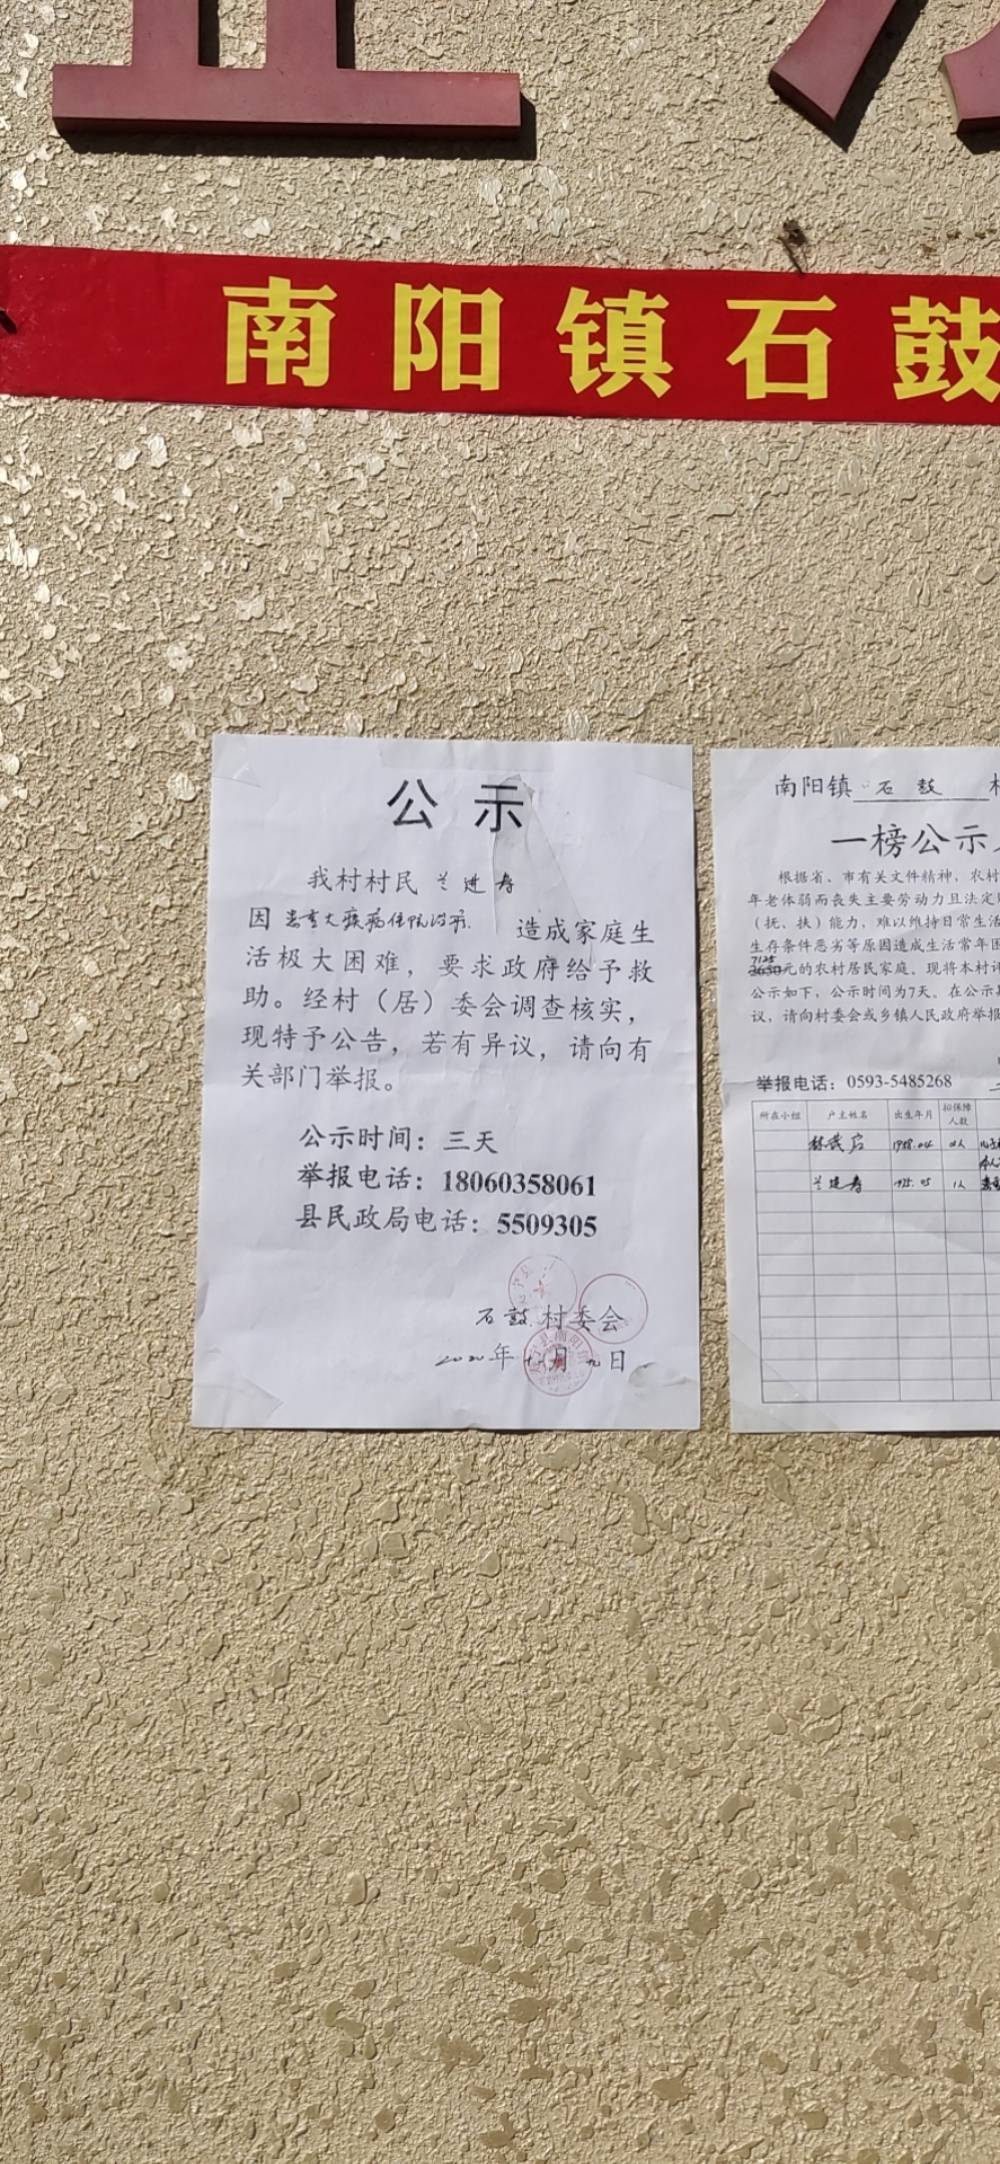 南阳镇石鼓
公示
我村村民 兰进寿
因 患重大疾病住院治疗. 造成家庭生
活极大困难，要求政府给予救
助。经村（居）委会调查核实，
现特予公告，若有异议，请向有
关部门举报。
公示时间：三天
举报电话：18060358061
县民政局电话：5509305
石鼓 村委会
2020年 月 九日
南阳镇 石鼓
一榜公示
根据省、市有关文件精神，农村
年老体弱而丧失主要劳动力且法定
（抚、扶）能力，难以维持日常生活
生存条件恶劣等原因造成生活常年困
7125
3650元的农村居民家庭。现将本村
公示如下，公示时间为7天。在公示
议，请向村委会或乡镇人民政府举报
举报电话：0593-5485268
所在小组 户主姓名 出生年月 拟保障人数
兰进寿 1人